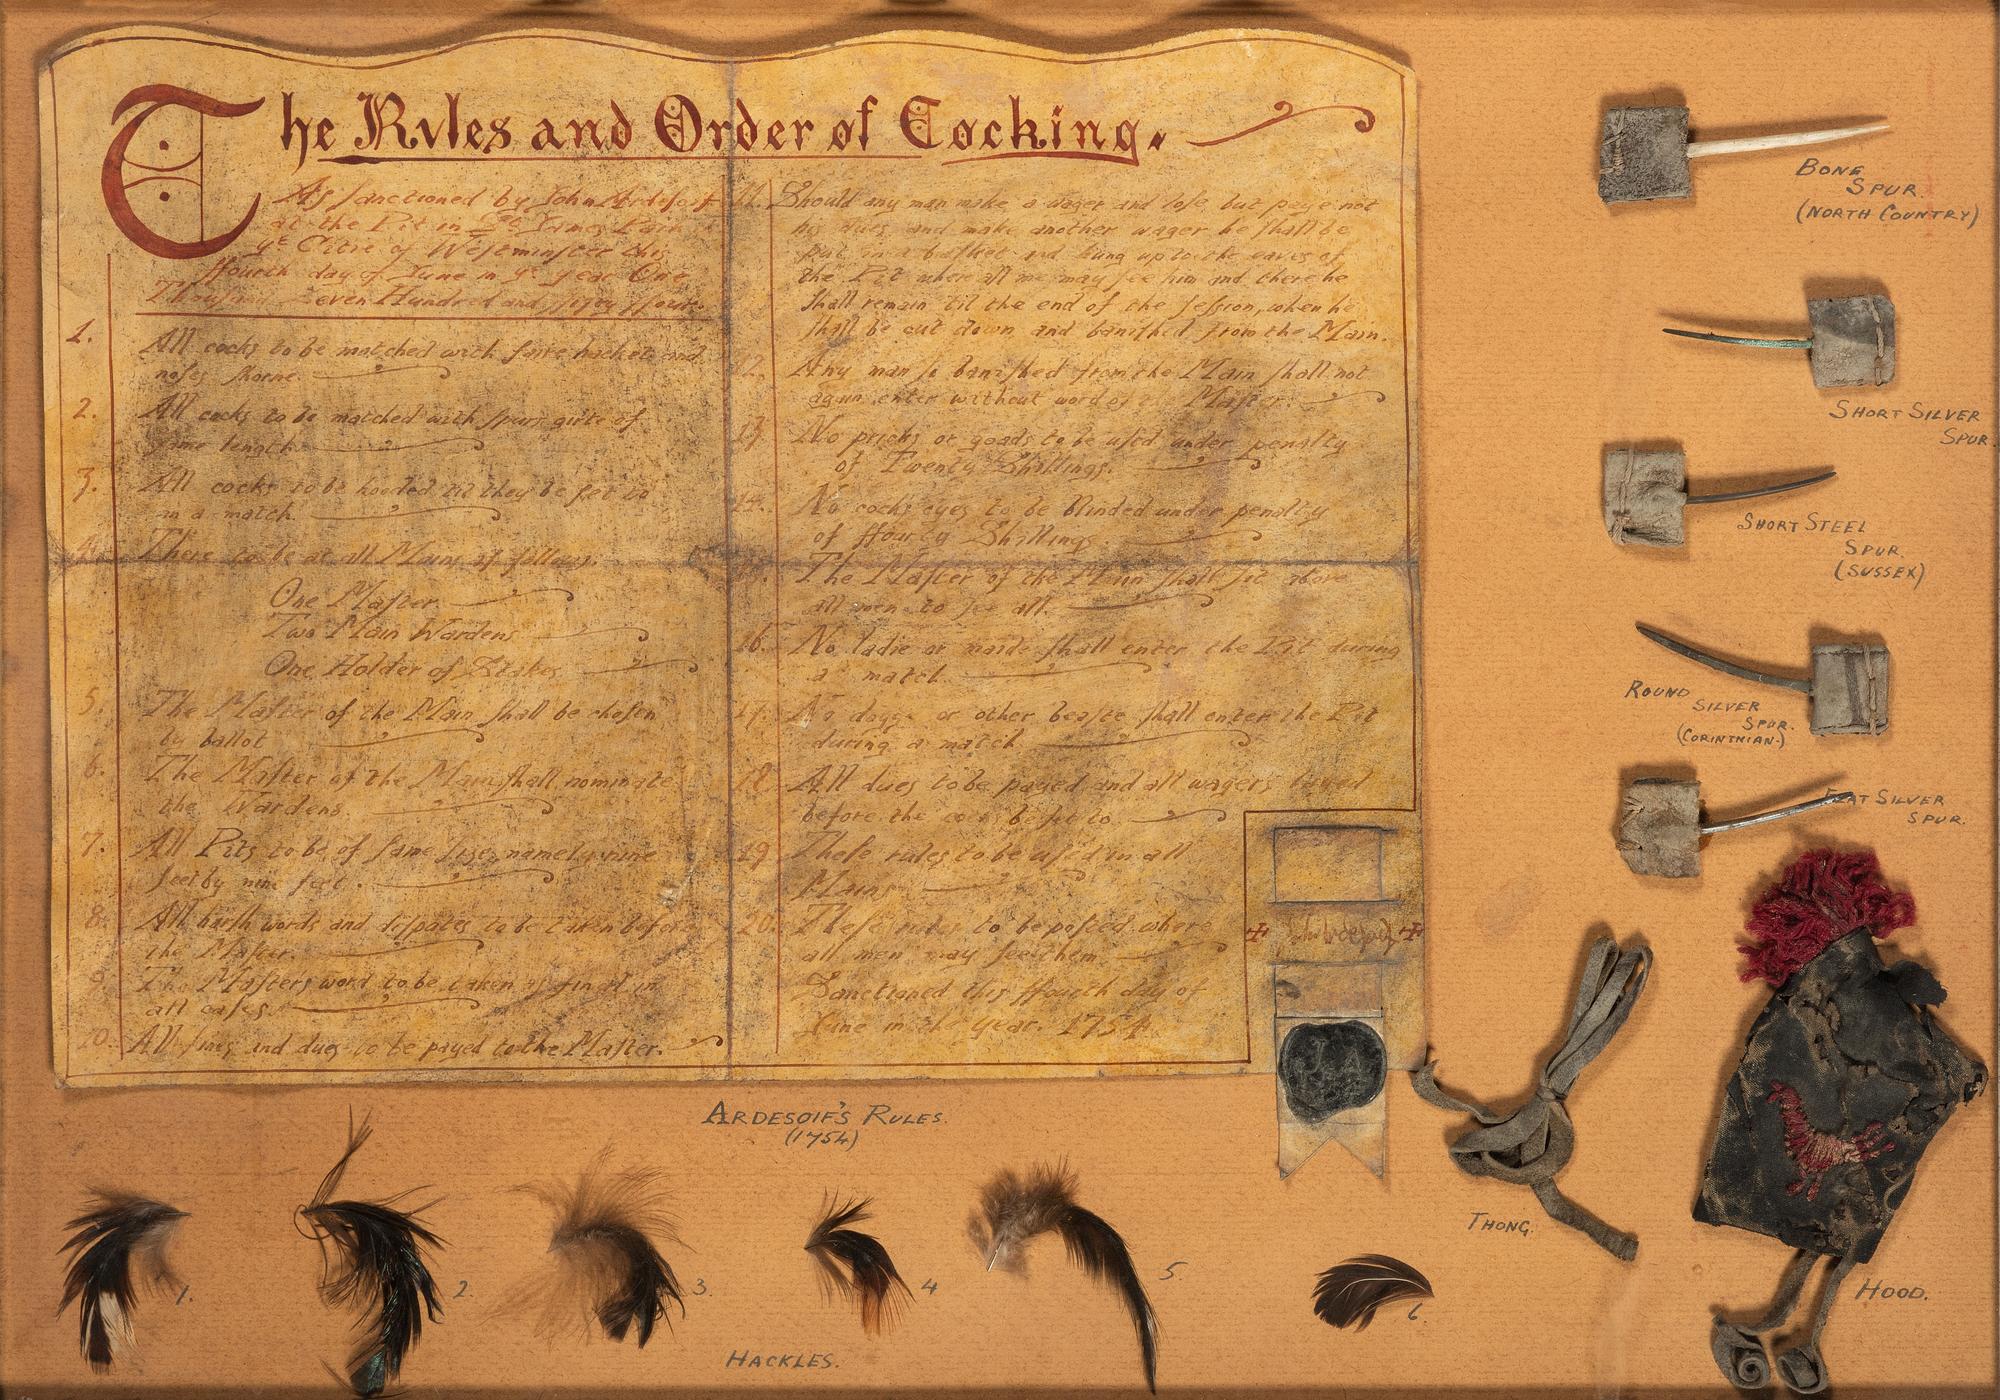 The Rules and Order of Cocking.
As sanctioned by John Ardesoif
at the Pit in St. James Park
ye Citie of Westminster this
ffourth day of June in ye year One
Thousand Seven Hundred and ffour.
1. All cocks to be matched with faire hackel and
noses shorne.
2. All cocks to be matched with spurs girte of
same length.
3. All cocks to be hooded til they be set to
in a match.
4. There to be at all Mains as follows.
One Master.
Two Main Wardens
One Holder of Stakes.
5. The Master of the Main shall be chosen
by ballot
6. The Master of the Main shall nominate
the Wardens.
7. All Pits to be of same size, namely nine
feet by nine feet.
8. All harsh words and disputes to be taken before
the Master.
9. The Masters word to be taken as final in
all cases.
10. All fines and dues to be payed to the Master.
11. Should any man make a wager and lose but paye not
his dues and make another wager he shall be
put in a basket and hung up to the eaves of
the Pit where all me may see him and there he
shall remain til the end of the session, when he
shall be cut down and banished from the Main.
12. Any man so banished from the Main shall not
again enter without word of the Master.
13. No pricks or goads to be used under penalty
of Twenty Shillings.
14. No cocks eyes to be blinded under penalty
of ffourty Shillings.
15. The Master of the Main shall sit above
all men to see all.
16. No ladie or maide shall enter the Pit during
a match.
17. No dogge or other beaste shall enter the Pit
during a match
18. All dues to be payed and all wagers layed
before the cocks be set to.
19 These rules to be used in all
Mains
20. These rules to be posted where
all men may see them
Sanctioned this ffourth day of
June in the year. 1754.
John Ardesoif
J A
ARDESOIF'S RULES.
(1754)
BONE
SPUR
(NORTH COUNTRY)
SHORT SILVER
SPUR.
SHORT STEEL
SPUR.
(SUSSEX)
ROUND
SILVER
SPUR.
(CORINTHIAN.)
FLAT SILVER
SPUR.
THONG.
HOOD.
1.
2.
3.
4
5.
6.
HACKLES.